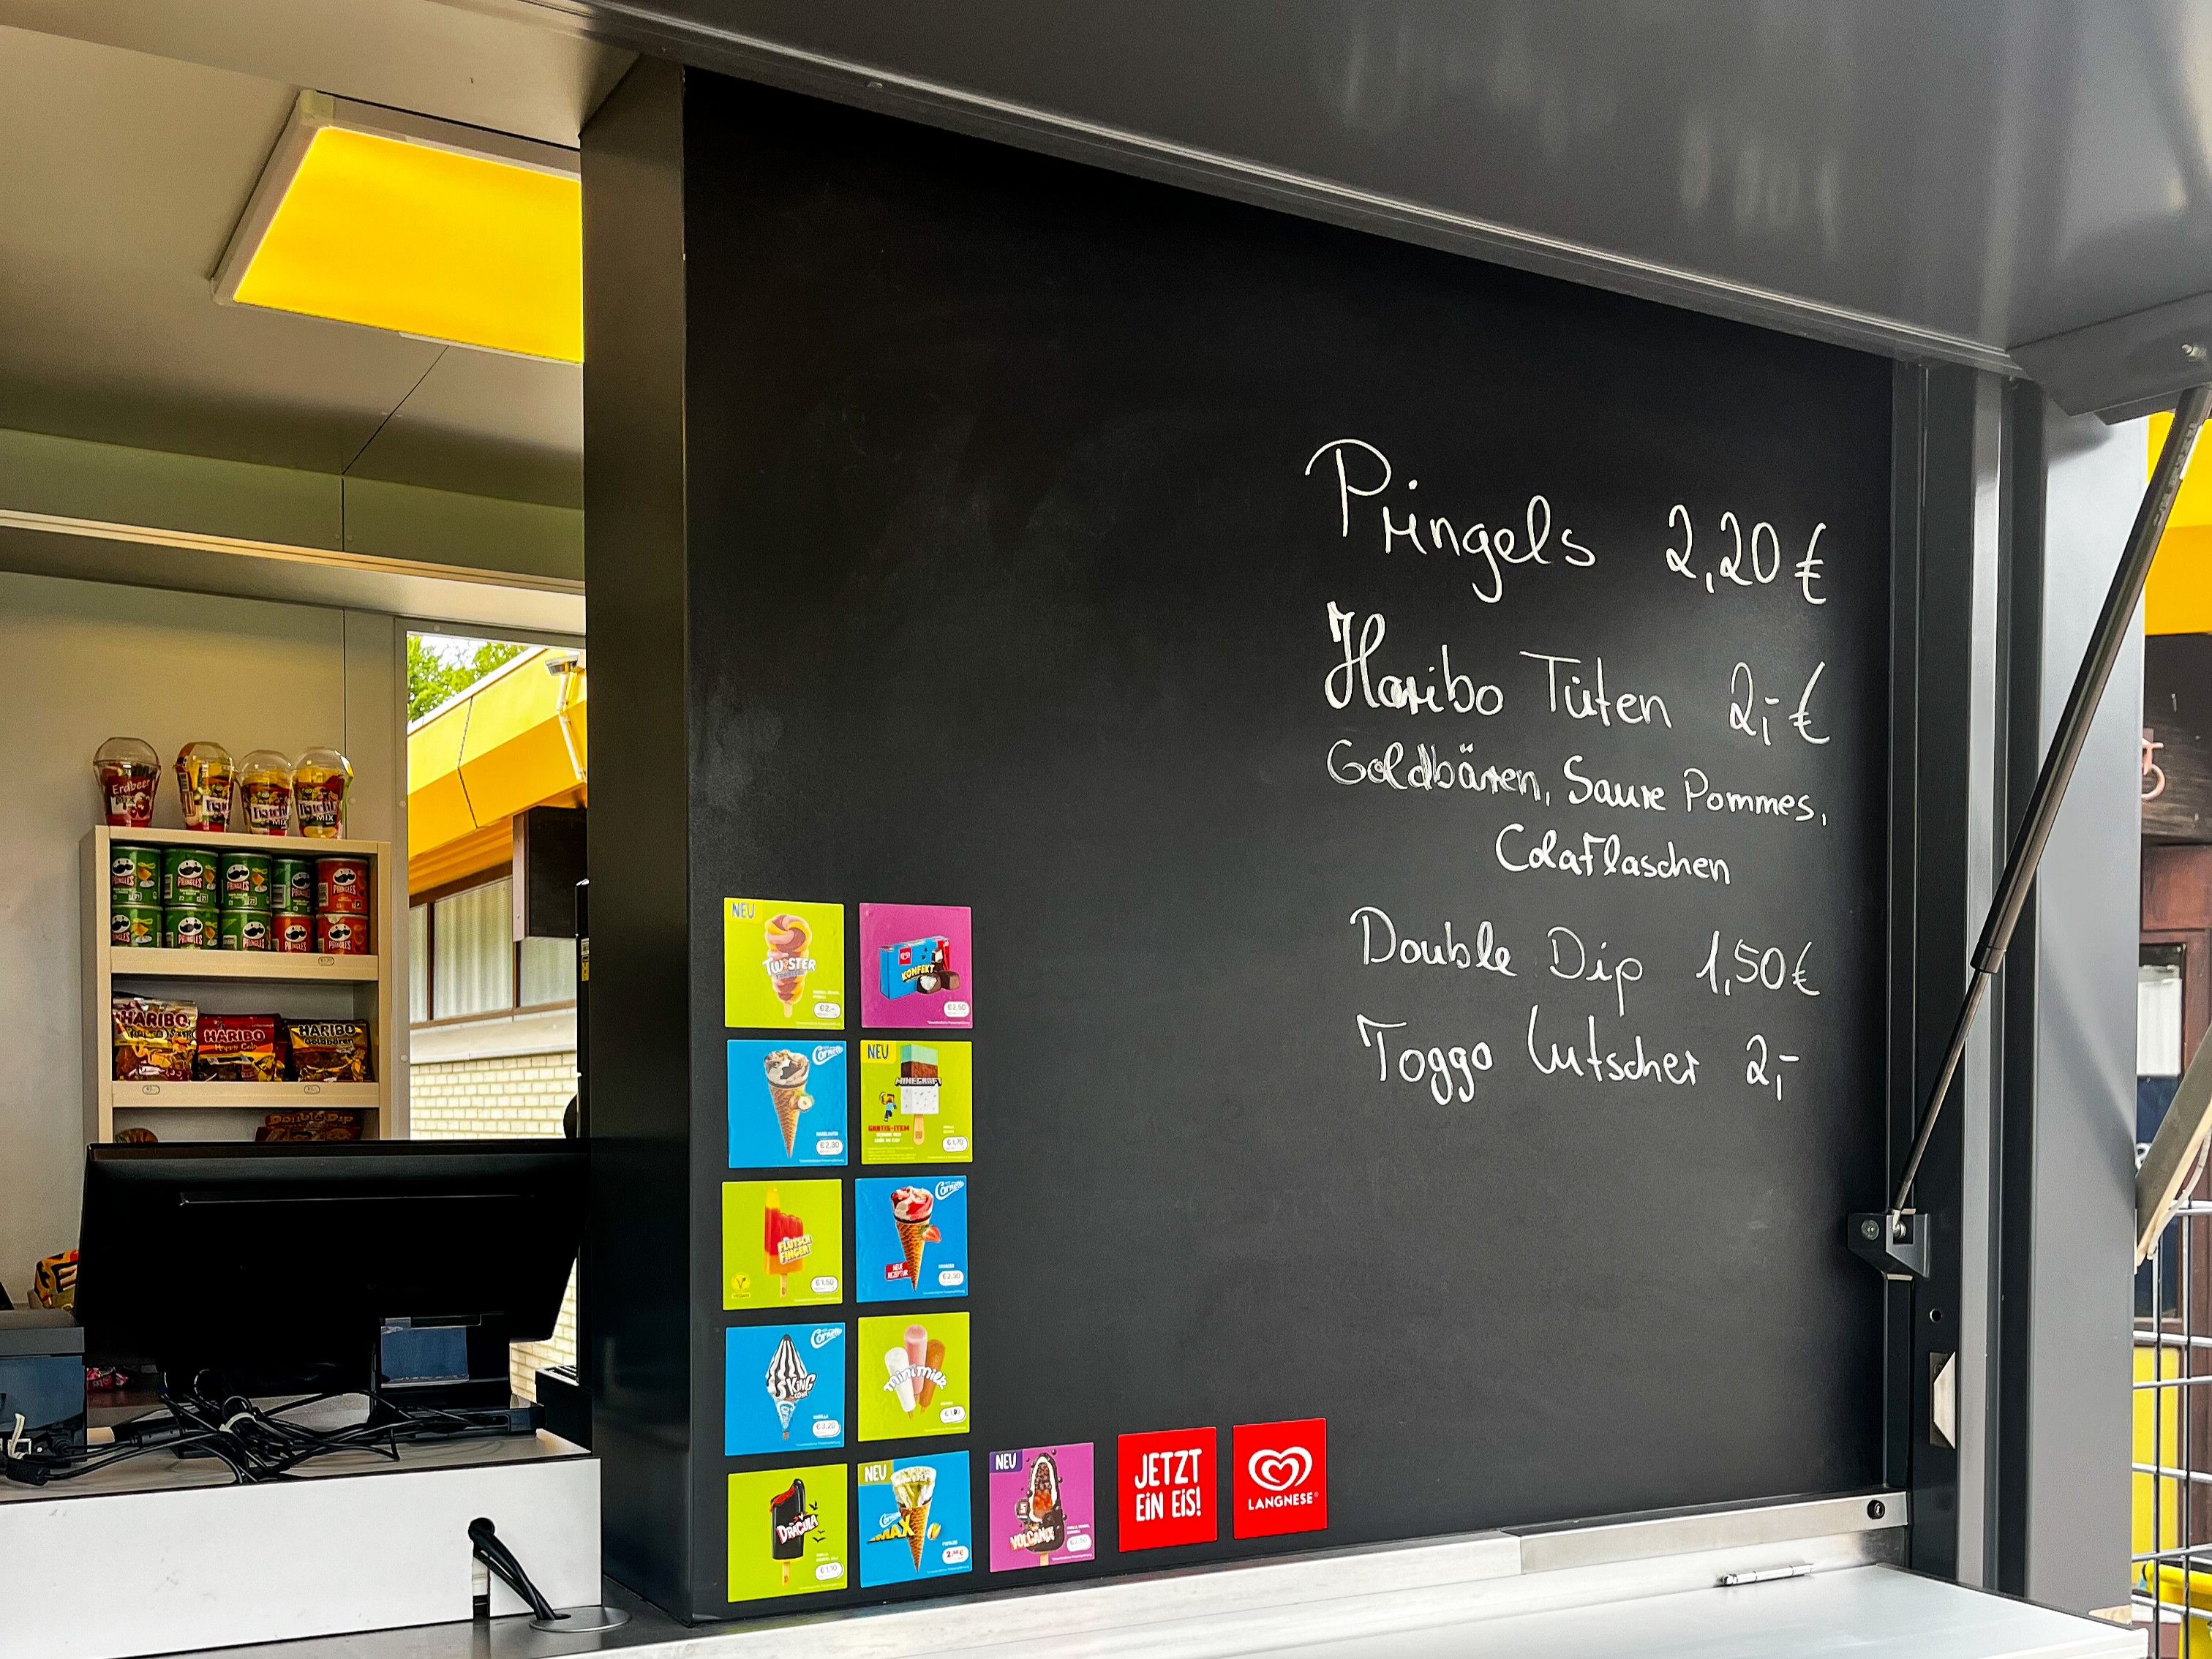 Pringels 2,20 €
Haribo Tüten 2,- €
Goldbären, Saure Pommes,
Colaflaschen
Double Dip 1,50 €
Toggo Lutscher 2,-
NEU
TWISTER
€2,-
KONFEKT
€2,50
Cornetto
€2,30
NEU
MINECRAFT
GRATIS-ITEM
€1,70
FLUTSCH
FINGER
VEGAN
€1,50
Cornetto
NEUE
REZEPTUR
€2,30
Cornetto
KING
CONE
€3,20
mini milk
DRACULA
€1,10
NEU
Cornetto
MAX
NEU
VOLCANO
JETZT
EIN EIS!
LANGNESE
Erdbeer
MIX
MIX
MIX
PRINGLES
PRINGLES
PRINGLES
PRINGLES
PRINGLES
PRINGLES
PRINGLES
PRINGLES
PRINGLES
HARIBO
HARIBO
Happy Cola
HARIBO
Goldbären
Double Dip